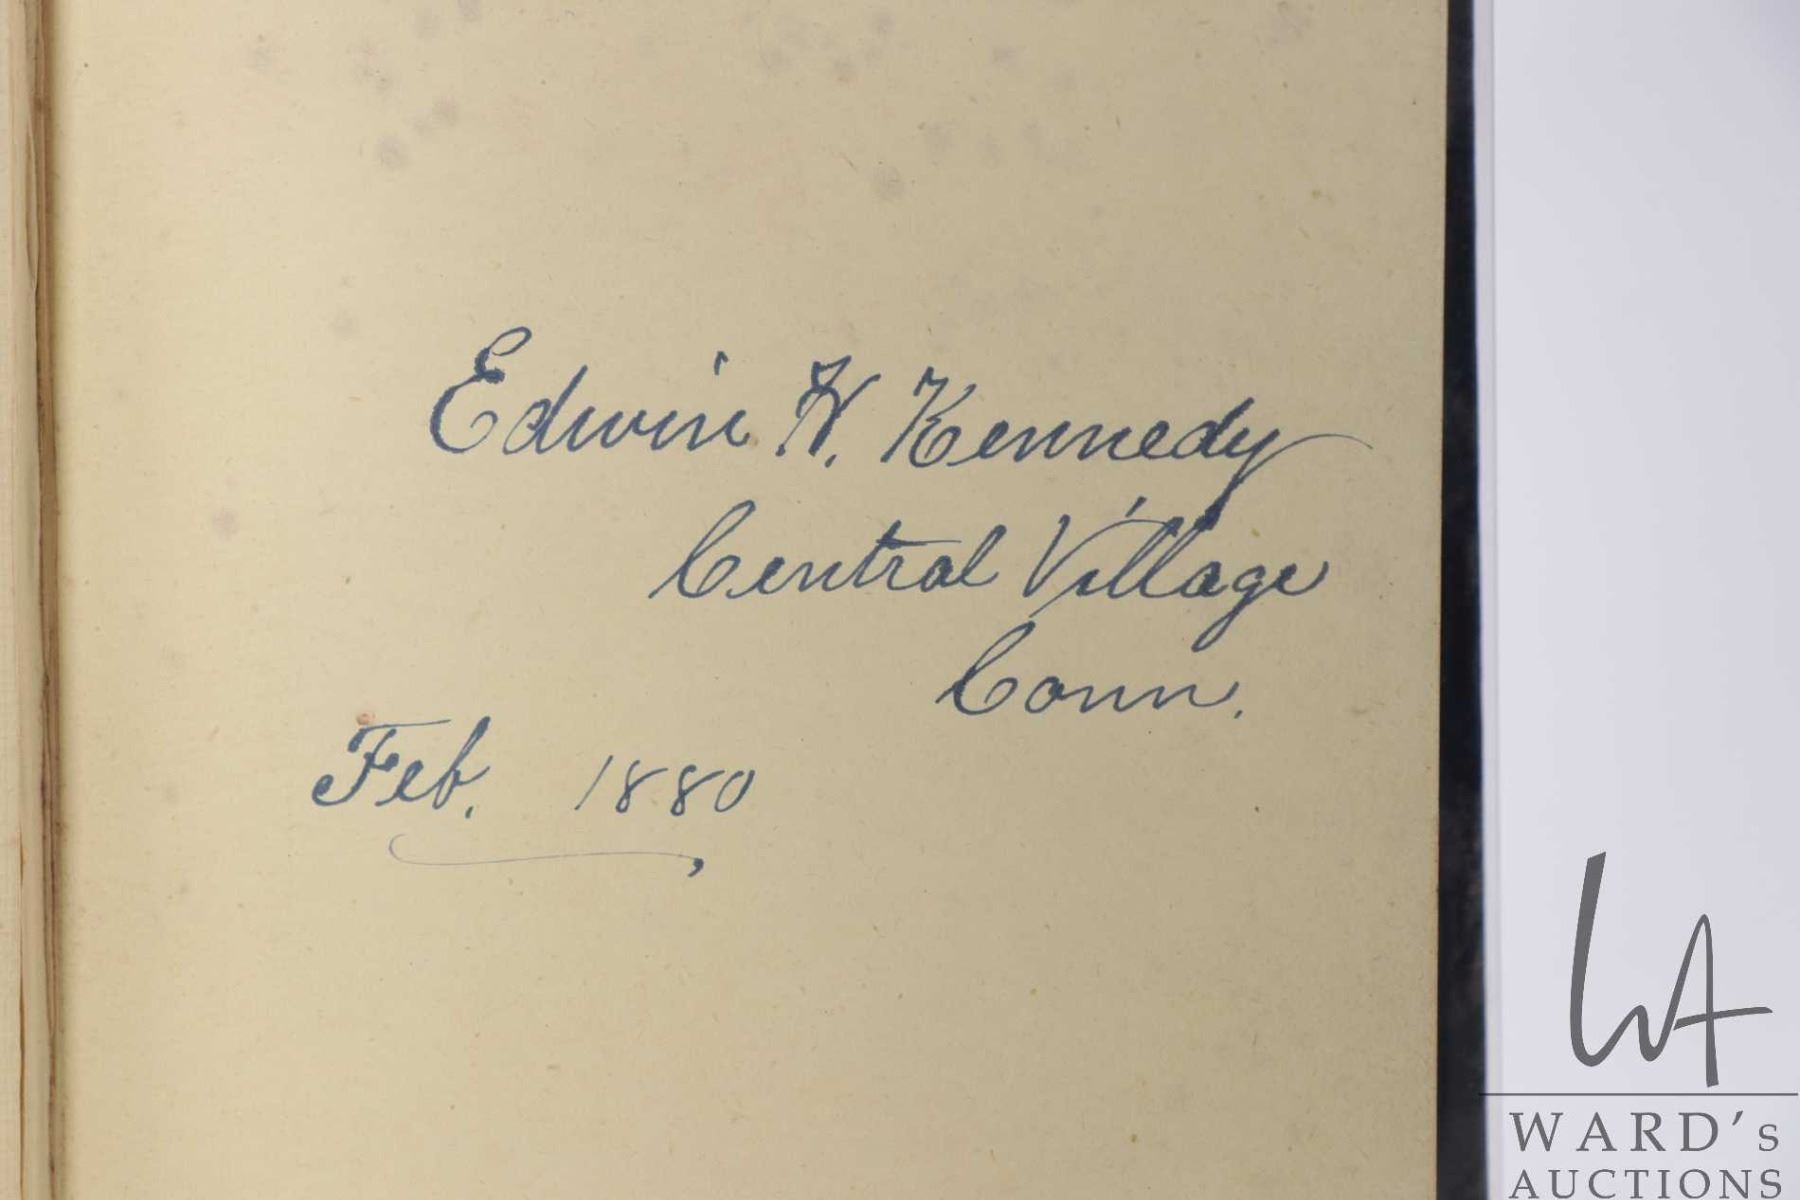 Edwin H. Kennedy
Central Village
Conn.
Feb. 1880
WA
WARD's
AUCTIONS